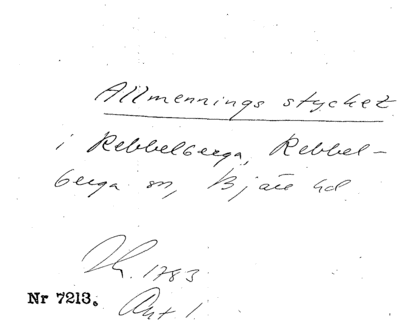 Allmennings stycket
i Rebbelberga, Rebbel-
berga sn, Bjäre hd
Lh. 1783
Nr 7213.
Akt 1